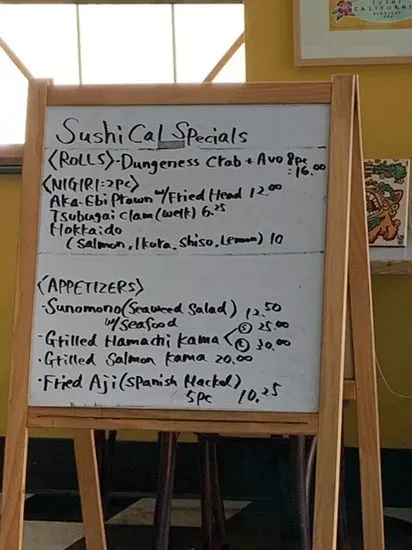 SUSHI
CALIFORNIA
Sushi Cal Specials
<ROLLS>・Dungeness Crab + Avo 8pc
=16.00
<NIGIRI=2pc>
Aka-Ebi Prawn w/Fried Head 12.00
Tsubugai clam (welk) 6.25
Hokkaido
(Salmon, Ikura, Shiso, Lemon) 10
<APPETIZERS>
・Sunomono (Seaweed Salad) 12.50
w/Seafood
・Grilled Hamachi Kama < (S) 25.00
(L) 30.00
・Grilled Salmon Kama 20.00
・Fried Aji (Spanish Mackel)
5pc 10.25